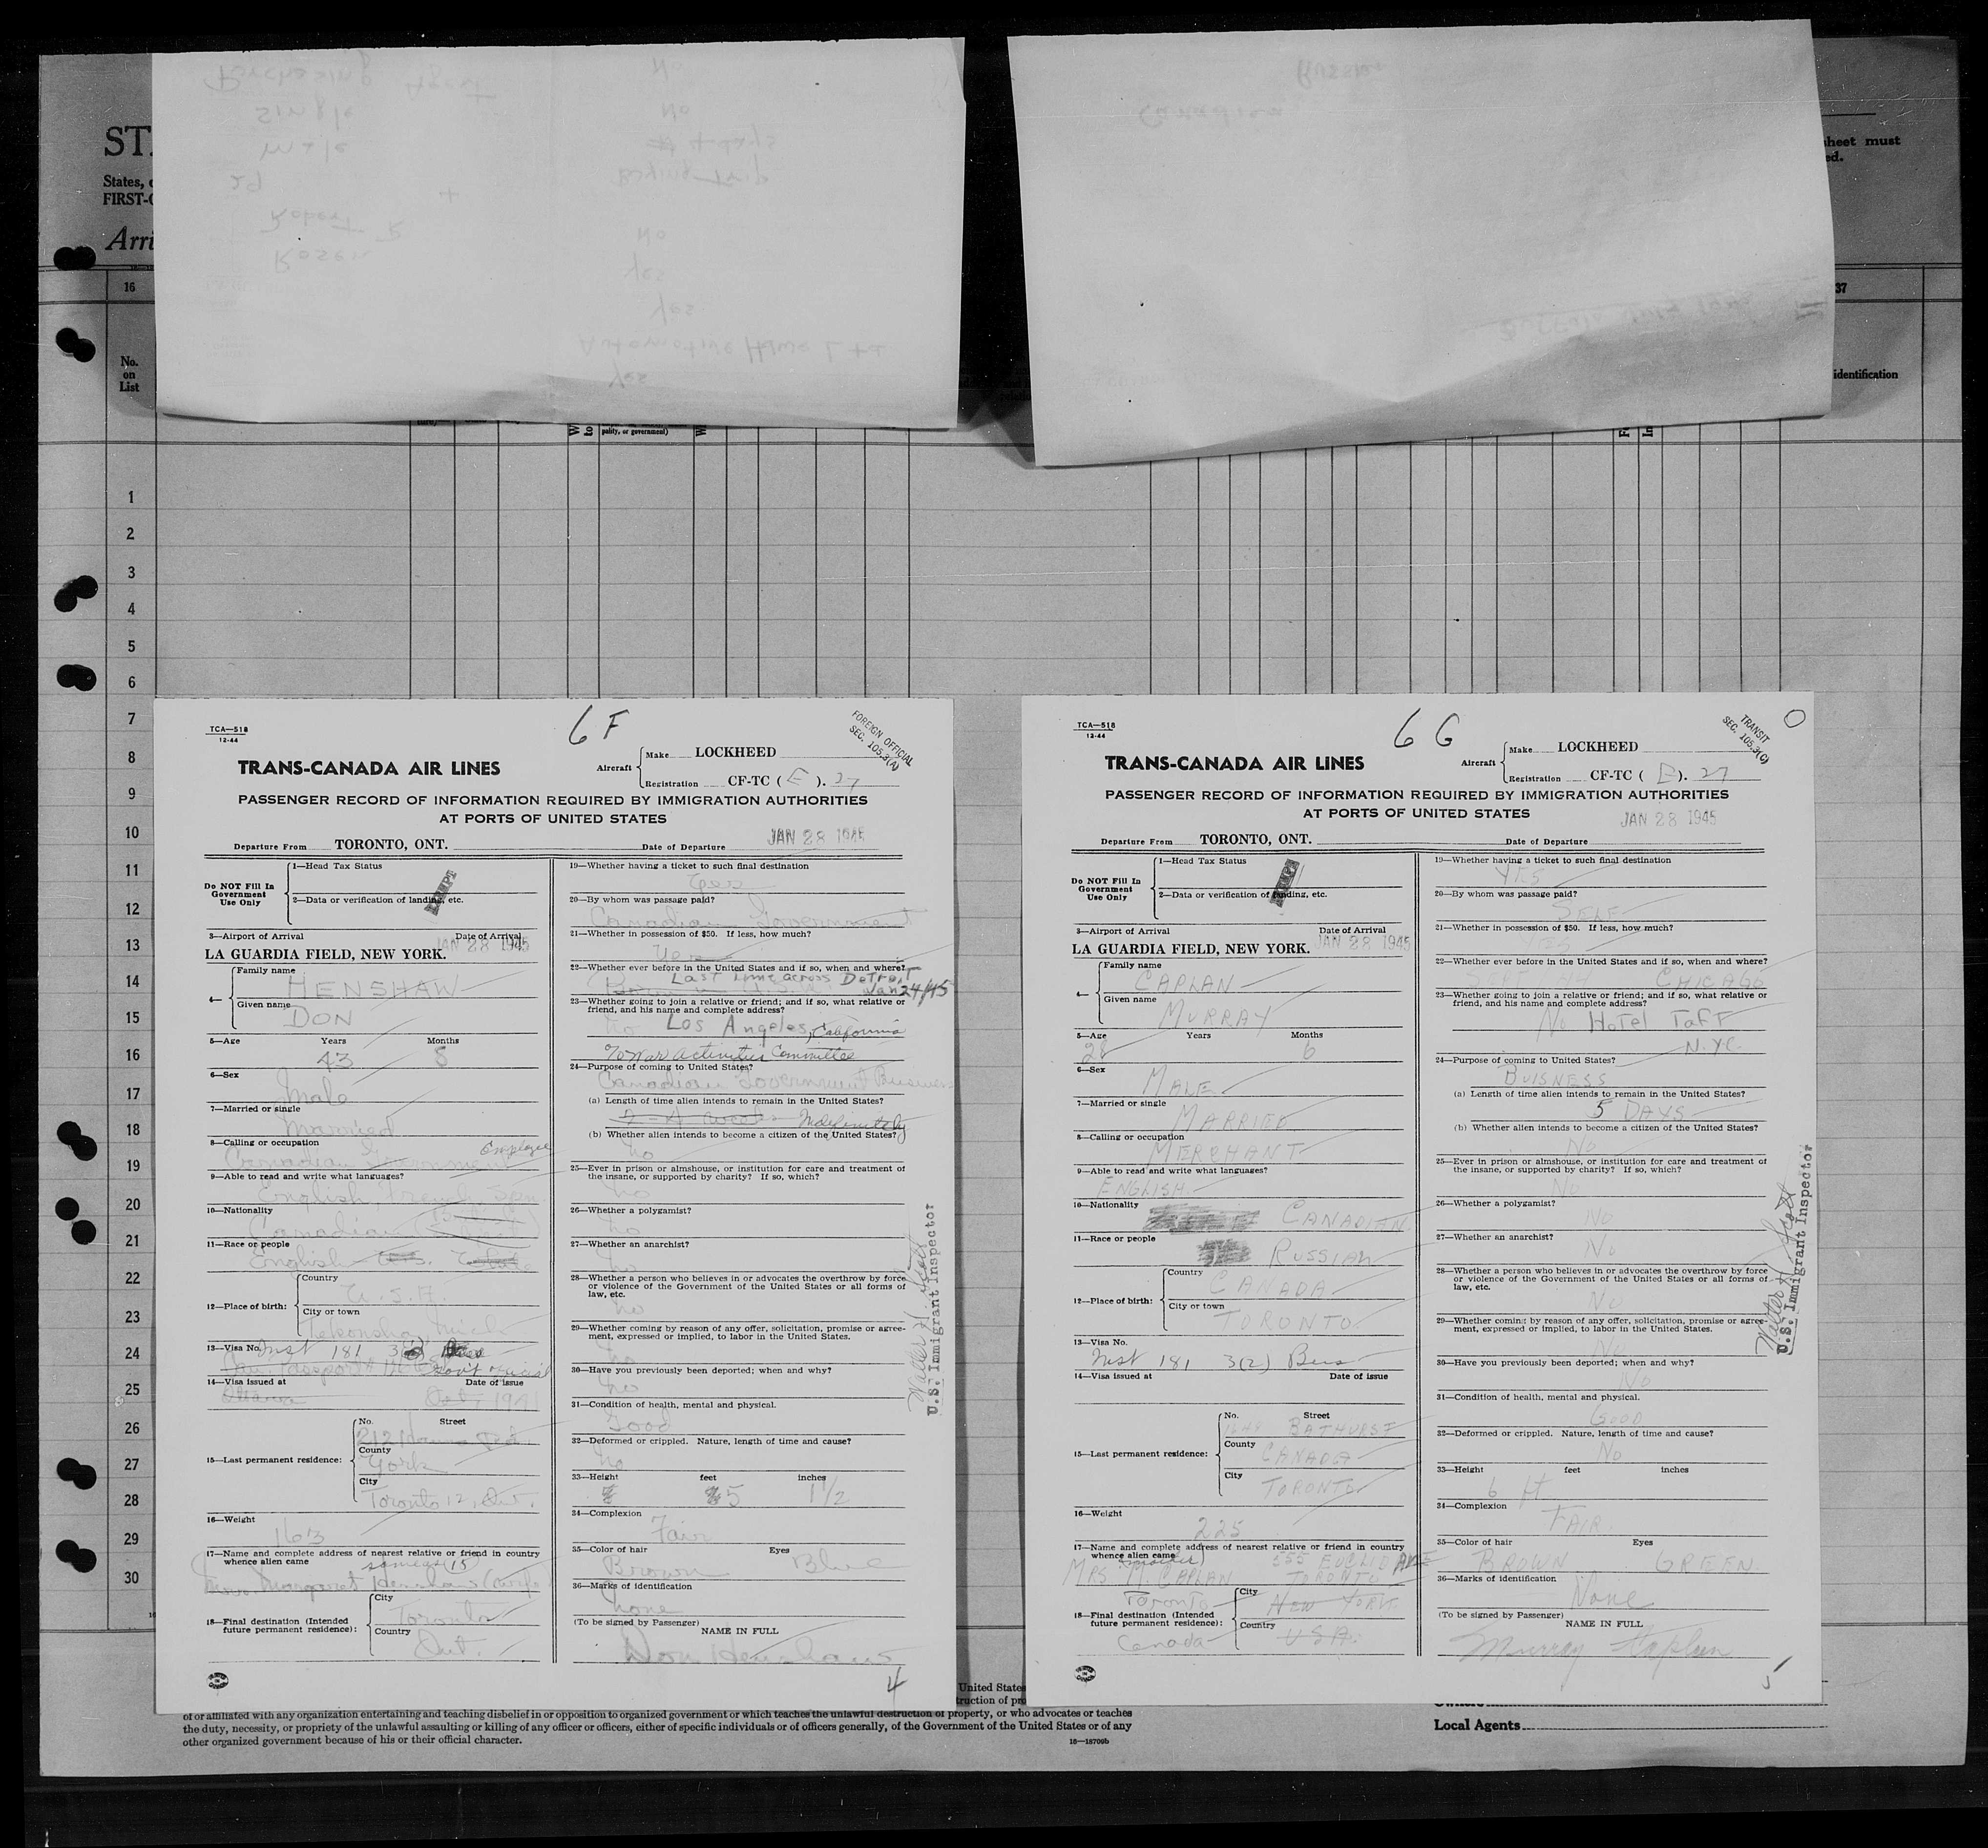 ST
States,
FIRST-
Arri
sheet must
ed.
16
37
No.
on
List
identification
pality, or government)
1
2
3
4
5
6
7
8
9
10
11
12
13
14
15
16
17
18
19
20
21
22
23
24
25
26
27
28
29
30
TCA—518
12-44
6 F
FOREIGN OFFICIAL
SEC. 105.3(A)
TRANS-CANADA AIR LINES
Aircraft
Make LOCKHEED
Registration CF-TC ( E ). 27
PASSENGER RECORD OF INFORMATION REQUIRED BY IMMIGRATION AUTHORITIES
AT PORTS OF UNITED STATES
JAN 28 1945
Departure From TORONTO, ONT. Date of Departure
Do NOT Fill In
Government
Use Only
1—Head Tax Status
2—Data or verification of landing, etc.
EXEMPT
3—Airport of Arrival Date of Arrival
LA GUARDIA FIELD, NEW YORK. JAN 28 1945
4— Family name
HENSHAW
Given name
DON
5—Age Years Months
43 8
6—Sex
Male
7—Married or single
Married
8—Calling or occupation
Canadian Government employee
9—Able to read and write what languages?
English, French, Spn.
10—Nationality
Canadian
11—Race or people
English
12—Place of birth:
Country
U.S.A.
City or town
Tekonsha, Mich
13—Visa No. Inst 181 3
Gov't official
14—Visa issued at Date of issue
Ottawa Oct, 194
15—Last permanent residence:
No. Street
212 Hanna Rd.
County
York
City
Toronto 12, Ont.
16—Weight
163
17—Name and complete address of nearest relative or friend in country
whence alien came same as (15)
Margaret Henshaw (wife)
18—Final destination (Intended
future permanent residence):
City
Toronto
Country
Ont.
19—Whether having a ticket to such final destination
Yes
20—By whom was passage paid?
Canadian Government
21—Whether in possession of $50. If less, how much?
Yes
22—Whether ever before in the United States and if so, when and where?
Last time across Detroit
Jan 24/45
23—Whether going to join a relative or friend; and if so, what relative or
friend, and his name and complete address?
no Los Angeles, California
To War Activities Committee
24—Purpose of coming to United States?
Canadian Government Business
(a) Length of time alien intends to remain in the United States?
2-4 weeks Indefinitely
(b) Whether alien intends to become a citizen of the United States?
no
25—Ever in prison or almshouse, or institution for care and treatment of
the insane, or supported by charity? If so, which?
no
26—Whether a polygamist?
no
27—Whether an anarchist?
no
28—Whether a person who believes in or advocates the overthrow by force
or violence of the Government of the United States or all forms of
law, etc.
no
29—Whether coming by reason of any offer, solicitation, promise or agree-
ment, expressed or implied, to labor in the United States.
no
30—Have you previously been deported; when and why?
no
31—Condition of health, mental and physical.
Good
32—Deformed or crippled. Nature, length of time and cause?
no
33—Height feet inches
5 1 1/2
34—Complexion
Fair
35—Color of hair Eyes
Brown Blue
36—Marks of identification
none
(To be signed by Passenger)
NAME IN FULL
Don Henshaw
4
Walter H. Scott
U.S. Immigrant Inspector
TCA—518
12-44
6 G
TRANSIT
SEC. 105.3(C)
TRANS-CANADA AIR LINES
Aircraft
Make LOCKHEED
Registration CF-TC ( E ). 27
PASSENGER RECORD OF INFORMATION REQUIRED BY IMMIGRATION AUTHORITIES
AT PORTS OF UNITED STATES
JAN 28 1945
Departure From TORONTO, ONT. Date of Departure
Do NOT Fill In
Government
Use Only
1—Head Tax Status
2—Data or verification of landing, etc.
EXEMPT
3—Airport of Arrival Date of Arrival
LA GUARDIA FIELD, NEW YORK. JAN 28 1945
4— Family name
CAPLAN
Given name
MURRAY
5—Age Years Months
28 6
6—Sex
MALE
7—Married or single
MARRIED
8—Calling or occupation
MERCHANT
9—Able to read and write what languages?
ENGLISH
10—Nationality
CANADIAN
11—Race or people
RUSSIAN
12—Place of birth:
Country
CANADA
City or town
TORONTO
13—Visa No.
Inst 181 3(2) Bus
14—Visa issued at Date of issue
15—Last permanent residence:
No. Street
BATHURST
County
CANADA
City
TORONTO
16—Weight
225
17—Name and complete address of nearest relative or friend in country
whence alien came (mother) 555 EUCLID AVE
MRS M. CAPLAN TORONTO
18—Final destination (Intended
future permanent residence):
Toronto
City
NEW YORK
Country
USA.
Canada
19—Whether having a ticket to such final destination
YES
20—By whom was passage paid?
SELF
21—Whether in possession of $50. If less, how much?
YES
22—Whether ever before in the United States and if so, when and where?
CHICAGO
23—Whether going to join a relative or friend; and if so, what relative or
friend, and his name and complete address?
No HOTEL TAFT
N.Y.C.
24—Purpose of coming to United States?
BUISNESS
(a) Length of time alien intends to remain in the United States?
5 DAYS
(b) Whether alien intends to become a citizen of the United States?
No
25—Ever in prison or almshouse, or institution for care and treatment of
the insane, or supported by charity? If so, which?
No
26—Whether a polygamist?
No
27—Whether an anarchist?
No
28—Whether a person who believes in or advocates the overthrow by force
or violence of the Government of the United States or all forms of
law, etc.
No
29—Whether coming by reason of any offer, solicitation, promise or agree-
ment, expressed or implied, to labor in the United States.
No
30—Have you previously been deported; when and why?
No
31—Condition of health, mental and physical.
GOOD
32—Deformed or crippled. Nature, length of time and cause?
No
33—Height feet inches
6 ft
34—Complexion
FAIR
35—Color of hair Eyes
BROWN GREEN
36—Marks of identification
None
(To be signed by Passenger)
NAME IN FULL
Murray Kaplan
5
Walter H Scott
U.S. Immigrant Inspector
United States
truction of pro
of or affiliated with any organization entertaining and teaching disbelief in or opposition to organized government or which teaches the unlawful destruction of property, or who advocates or teaches
the duty, necessity, or propriety of the unlawful assaulting or killing of any officer or officers, either of specific individuals or of officers generally, of the Government of the United States or of any
other organized government because of his or their official character.
16—18709b
Owners
Local Agents